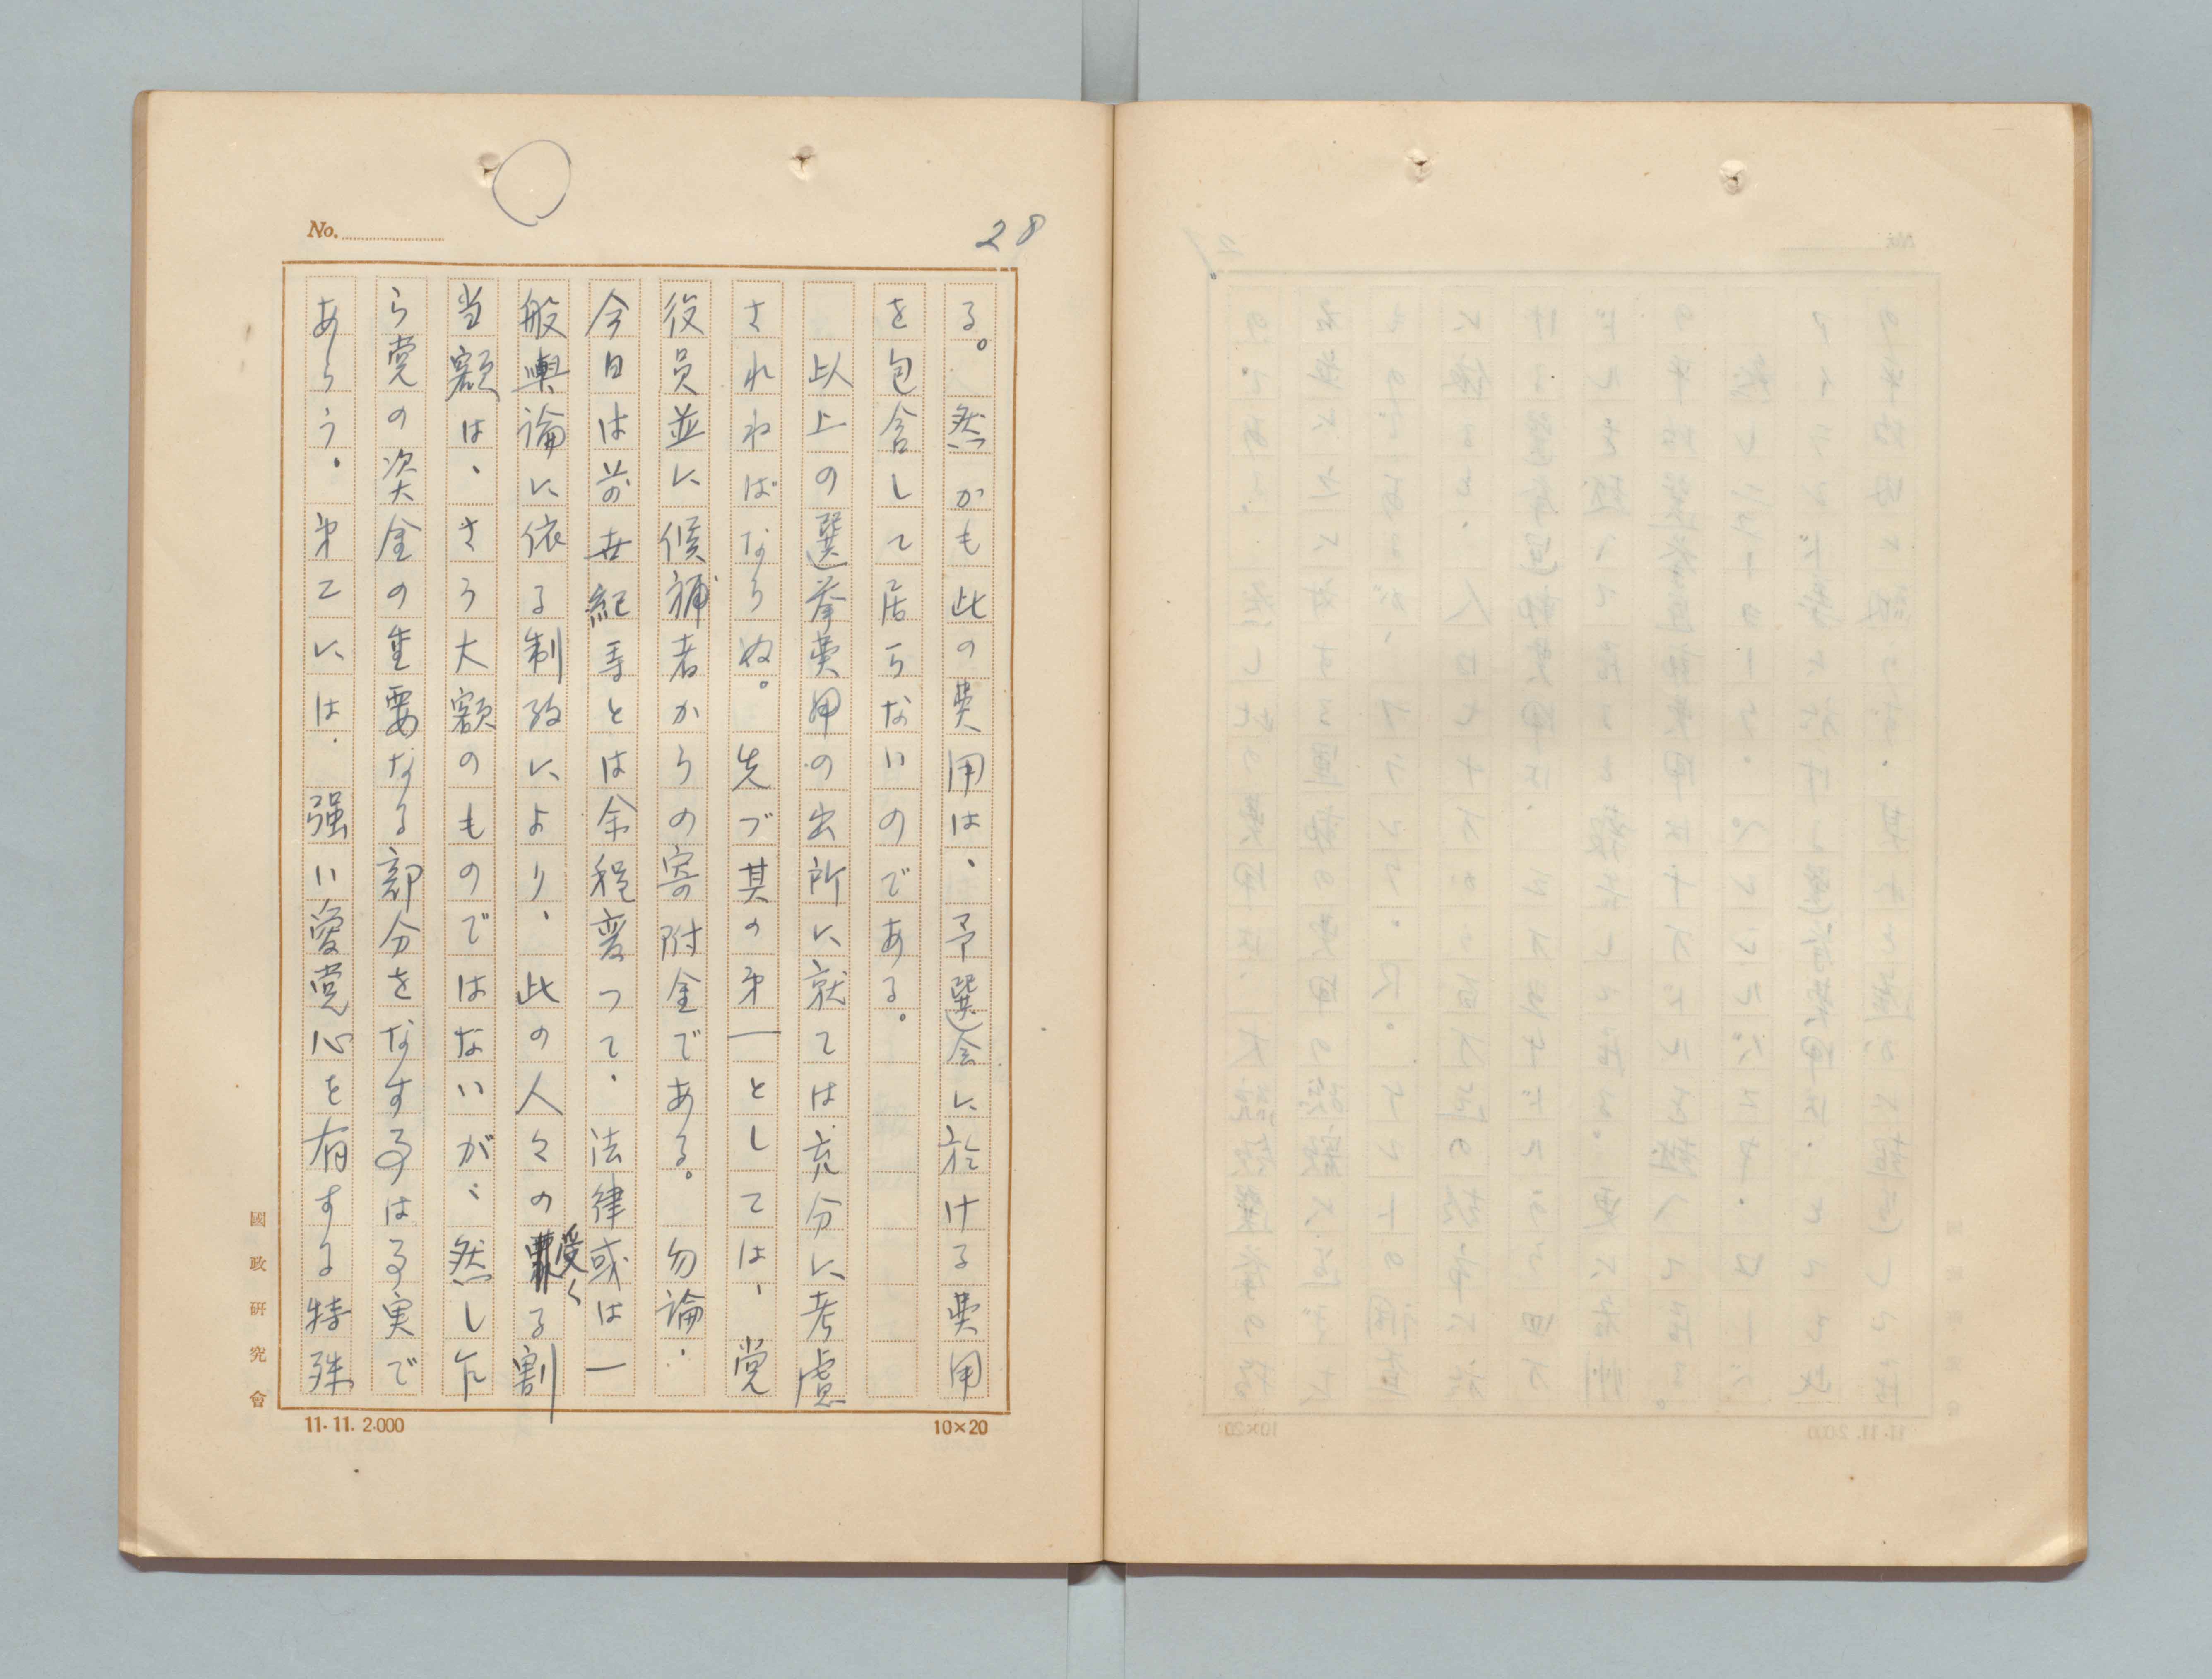 28
No.
る。然かも此の費用は、予選会に於ける費用
を包含して居らないのである。
以上の選挙費用の出所に就ては充分に考慮
されねばならぬ。先づ其の第一としては、党
役員並に候補者からの寄附金である。勿論、
今日は前世紀等とは余程変つて、法律或は一
般輿論に依る制 により、此の人々の受くる割
当額は、さう大額のものではないが、然し乍
ら党の資金の重要なる部分をなす事は事実で
あらう。第二には、強い愛党心を有する特殊
國政研究會
11.11.2.000
10×20